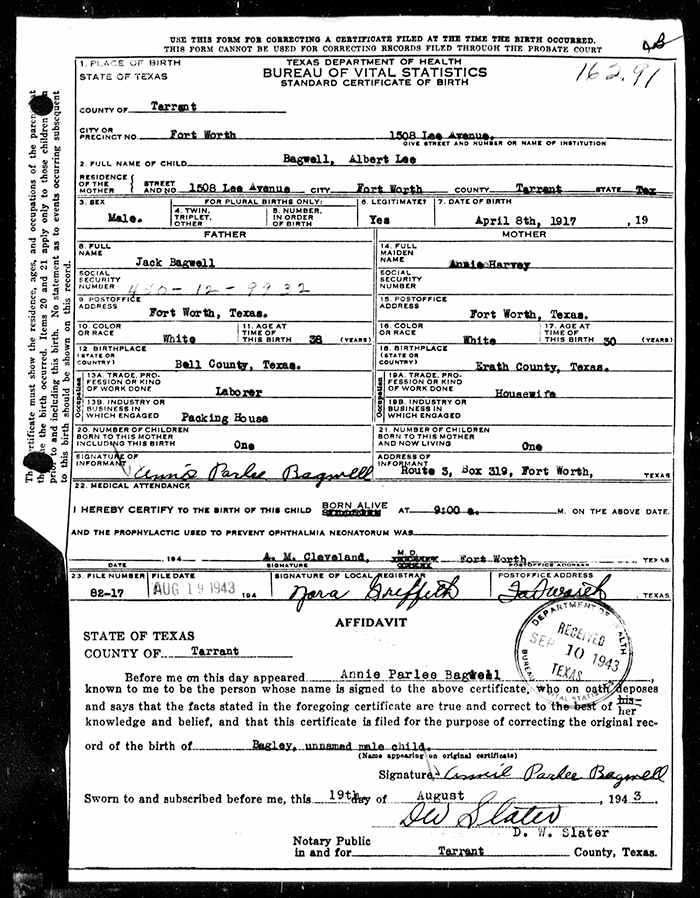 USE THIS FORM FOR CORRECTING A CERTIFICATE FILED AT THE TIME THE BIRTH OCCURRED.
THIS FORM CANNOT BE USED FOR CORRECTING RECORDS FILED THROUGH THE PROBATE COURT
1. PLACE OF BIRTH
STATE OF TEXAS
TEXAS DEPARTMENT OF HEALTH
BUREAU OF VITAL STATISTICS
STANDARD CERTIFICATE OF BIRTH
162.91
COUNTY OF Tarrant
CITY OR PRECINCT NO. Fort Worth 1508 Lee Avenue.
GIVE STREET AND NUMBER OR NAME OF INSTITUTION
2. FULL NAME OF CHILD Bagwell, Albert Lee
RESIDENCE OF THE MOTHER STREET AND NO. 1508 Lee Avenue CITY Fort Worth COUNTY Tarrant STATE Tex
3. SEX Male.
FOR PLURAL BIRTHS ONLY:
4. TWIN, TRIPLET, OTHER
5. NUMBER, IN ORDER OF BIRTH
6. LEGITIMATE? Yes
7. DATE OF BIRTH April 8th, 1917 , 19
FATHER
8. FULL NAME Jack Bagwell
SOCIAL SECURITY NUMBER 450-12-9932
9 POSTOFFICE ADDRESS Fort Worth, Texas.
10. COLOR OR RACE White
11. AGE AT TIME OF THIS BIRTH 38 (YEARS)
12 BIRTHPLACE (STATE OR COUNTRY) Bell County, Texas.
Occupation
13A. TRADE, PROFESSION OR KIND OF WORK DONE Laborer
13B. INDUSTRY OR BUSINESS IN WHICH ENGAGED Packing House
MOTHER
14. FULL MAIDEN NAME Annie Harvey
SOCIAL SECURITY NUMBER
15. POSTOFFICE ADDRESS Fort Worth, Texas.
16. COLOR OR RACE White
17. AGE AT TIME OF THIS BIRTH 30 (YEARS)
18. BIRTHPLACE (STATE OR COUNTRY) Erath County, Texas.
Occupation
19A. TRADE, PROFESSION OR KIND OF WORK DONE Housewife
19B. INDUSTRY OR BUSINESS IN WHICH ENGAGED
20. NUMBER OF CHILDREN BORN TO THIS MOTHER INCLUDING THIS BIRTH One
21. NUMBER OF CHILDREN BORN TO THIS MOTHER AND NOW LIVING One
SIGNATURE OF INFORMANT Annie Parlee Bagwell
ADDRESS OF INFORMANT Route 3, Box 319, Fort Worth, TEXAS
22. MEDICAL ATTENDANCE
I HEREBY CERTIFY TO THE BIRTH OF THIS CHILD BORN ALIVE AT 9:00 a. M. ON THE ABOVE DATE.
AND THE PROPHYLACTIC USED TO PREVENT OPHTHALMIA NEONATORUM WAS
194 A. M. Cleveland, M.D. Fort Worth TEXAS
DATE SIGNATURE POSTOFFICE ADDRESS
23. FILE NUMBER 82-17
FILE DATE AUG 19 1943 194
SIGNATURE OF LOCAL REGISTRAR Nora Griffith
POSTOFFICE ADDRESS Ft Worth , TEXAS
AFFIDAVIT
STATE OF TEXAS
COUNTY OF Tarrant
DEPARTMENT OF HEALTH
RECEIVED
SEP 10 1943
TEXAS
BUREAU VITAL STATISTICS
Before me on this day appeared Annie Parlee Bagwell ,
known to me to be the person whose name is signed to the above certificate, who on oath deposes
and says that the facts stated in the foregoing certificate are true and correct to the best of his her
knowledge and belief, and that this certificate is filed for the purpose of correcting the original rec-
ord of the birth of Bagley, unnamed male child.
(Name appearing on original certificate)
Signature Annie Parlee Bagwell
Sworn to and subscribed before me, this 19th day of August , 1943 .
DW Slater
D. W. Slater
Notary Public
in and for Tarrant County, Texas.
certificate must show the residence, ages, and occupations of the parent at
the birth occurred. Items 20 and 21 apply only to those children
prior to and including this birth. No statement as to events occurring subsequent
to this birth should be shown on this record.